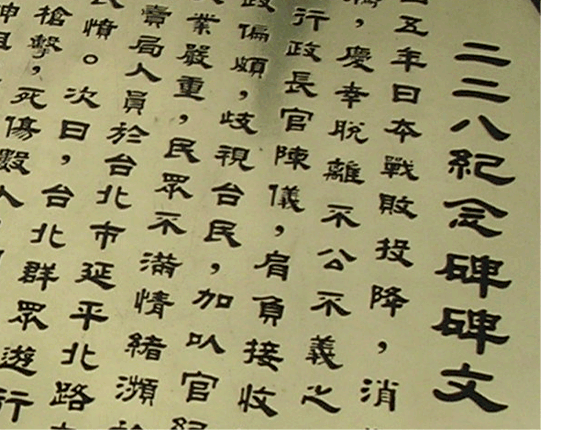 二二八紀念碑碑文
五年日本戰敗投降，消
，慶幸脫離不公不義之
行政長官陳儀，肩負接收
政偏頗，歧視台民，加以官
業嚴重，民眾不滿情緒瀕於
賣局人員於台北市延平北路
民憤。次日，台北群眾遊行
槍擊，死傷數人